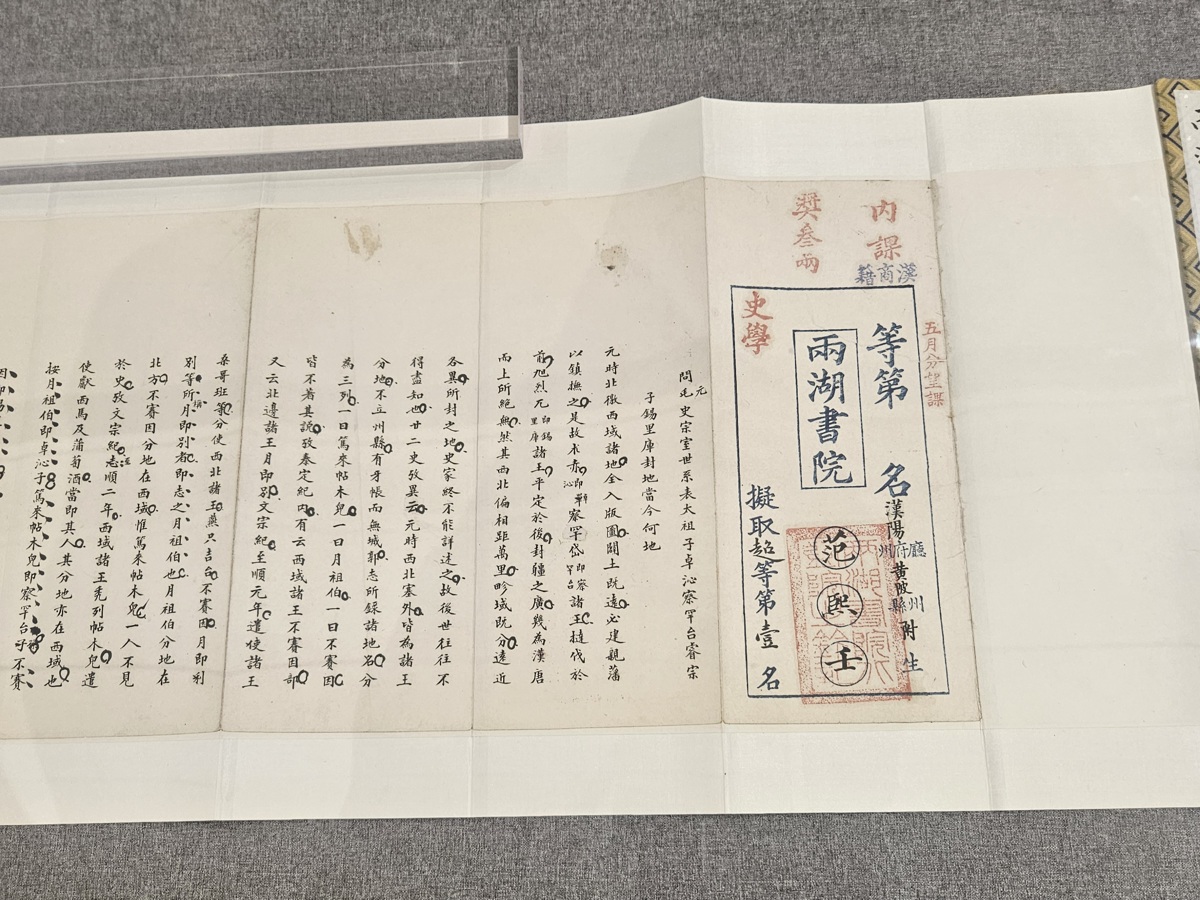 五月分望課
內課
漢商籍
獎叄兩
等第 名
漢陽府黃陂縣附生
廳州
州
兩湖書院
史學
范熙壬
擬取超等第壹名
問元史宗室世系表太祖子卓沁察罕台睿宗
子錫里庫封地當今何地
元時北徼西域諸地全入版圖闢土既遠必建親藩
以鎮撫之是故朮赤即卓沁察罕岱即察罕台諸王撻伐於
前旭烈兀即錫里庫諸王平定於後封疆之廣幾為漢唐
而上所絕無然其西北偏相距萬里畛域既分遠近
各異所封之地史家終不能詳述之故後世往往不
得盡知也廿二史攷異云元時西北塞外皆為諸王
分地不立州縣有牙帳而無城郭志所錄諸地名分
為三列一曰篤來帖木兒一曰月祖伯一曰不賽因
皆不著其說攷泰定紀內有云西域諸王不賽因部
又云北邊諸王月即別文宗紀至順元年遣使諸王
桑哥班等分使西北諸王燕只吉台不賽因月即別
別等所稱月即別者即志之月祖伯也月祖伯分地在
北方不賽因分地在西域惟篤來帖木兒一人不見
於史攷文宗紀至順二年西域諸王禿列帖木兒遣
使獻西馬及蒲萄酒當即其人其分地亦在西域也
按月祖伯即卓沁子篤來帖木兒即察罕台子不賽